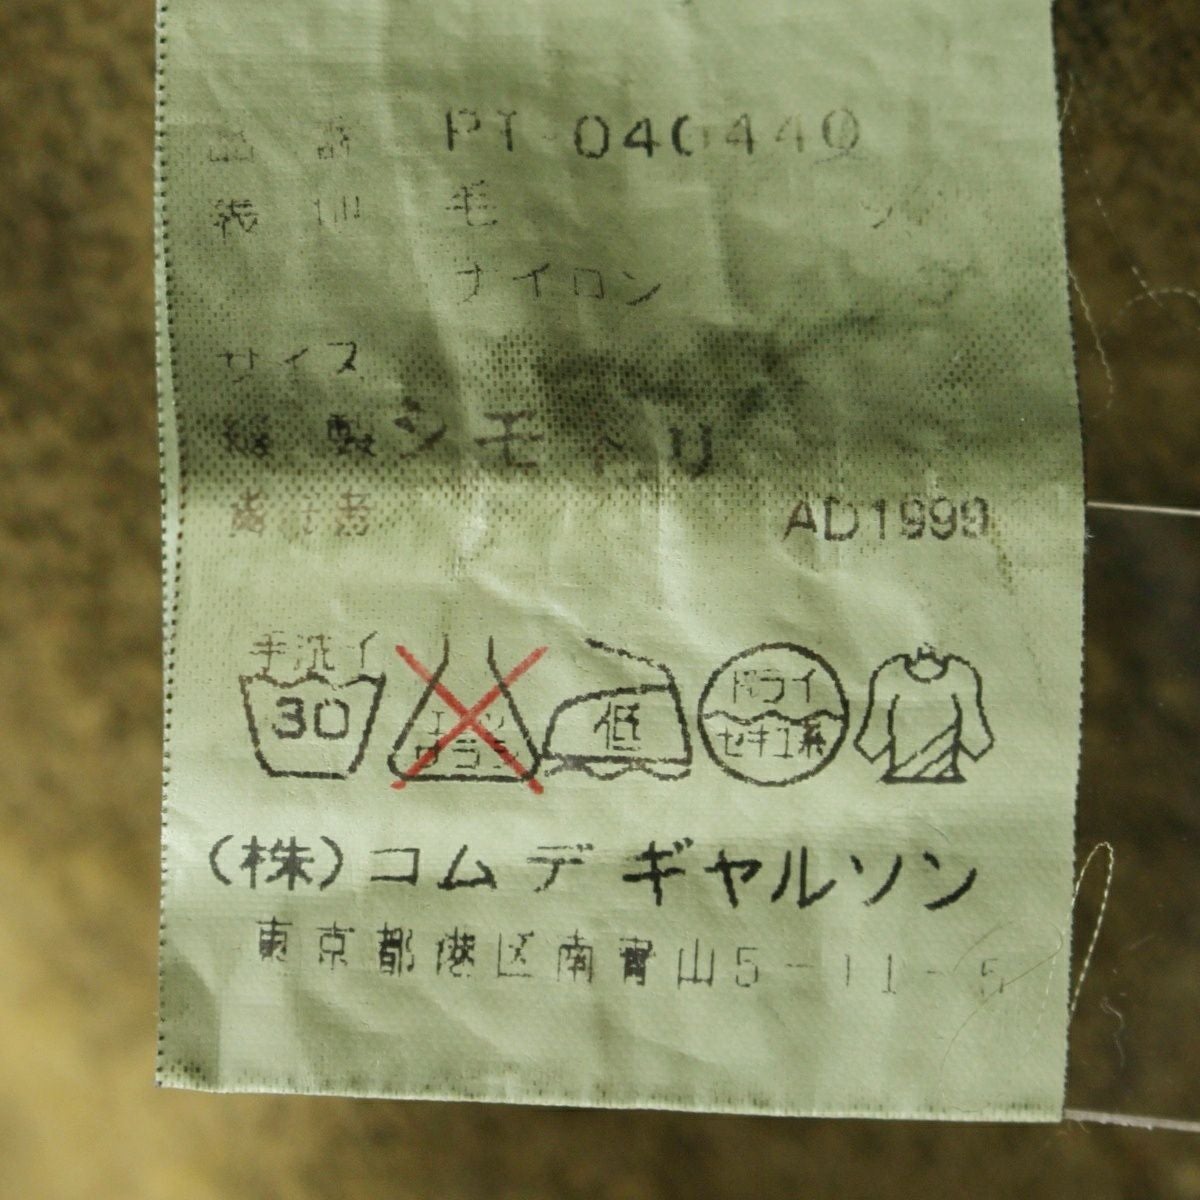 品番 PT-040440
表地 毛
ナイロン
サイズ
縫製 シモトリ
責任者
AD1999
手洗イ
30
エンソ
サラシ
低
ドライ
セキユ系
(株)コム デ ギャルソン
東京都港区南青山5-11-5